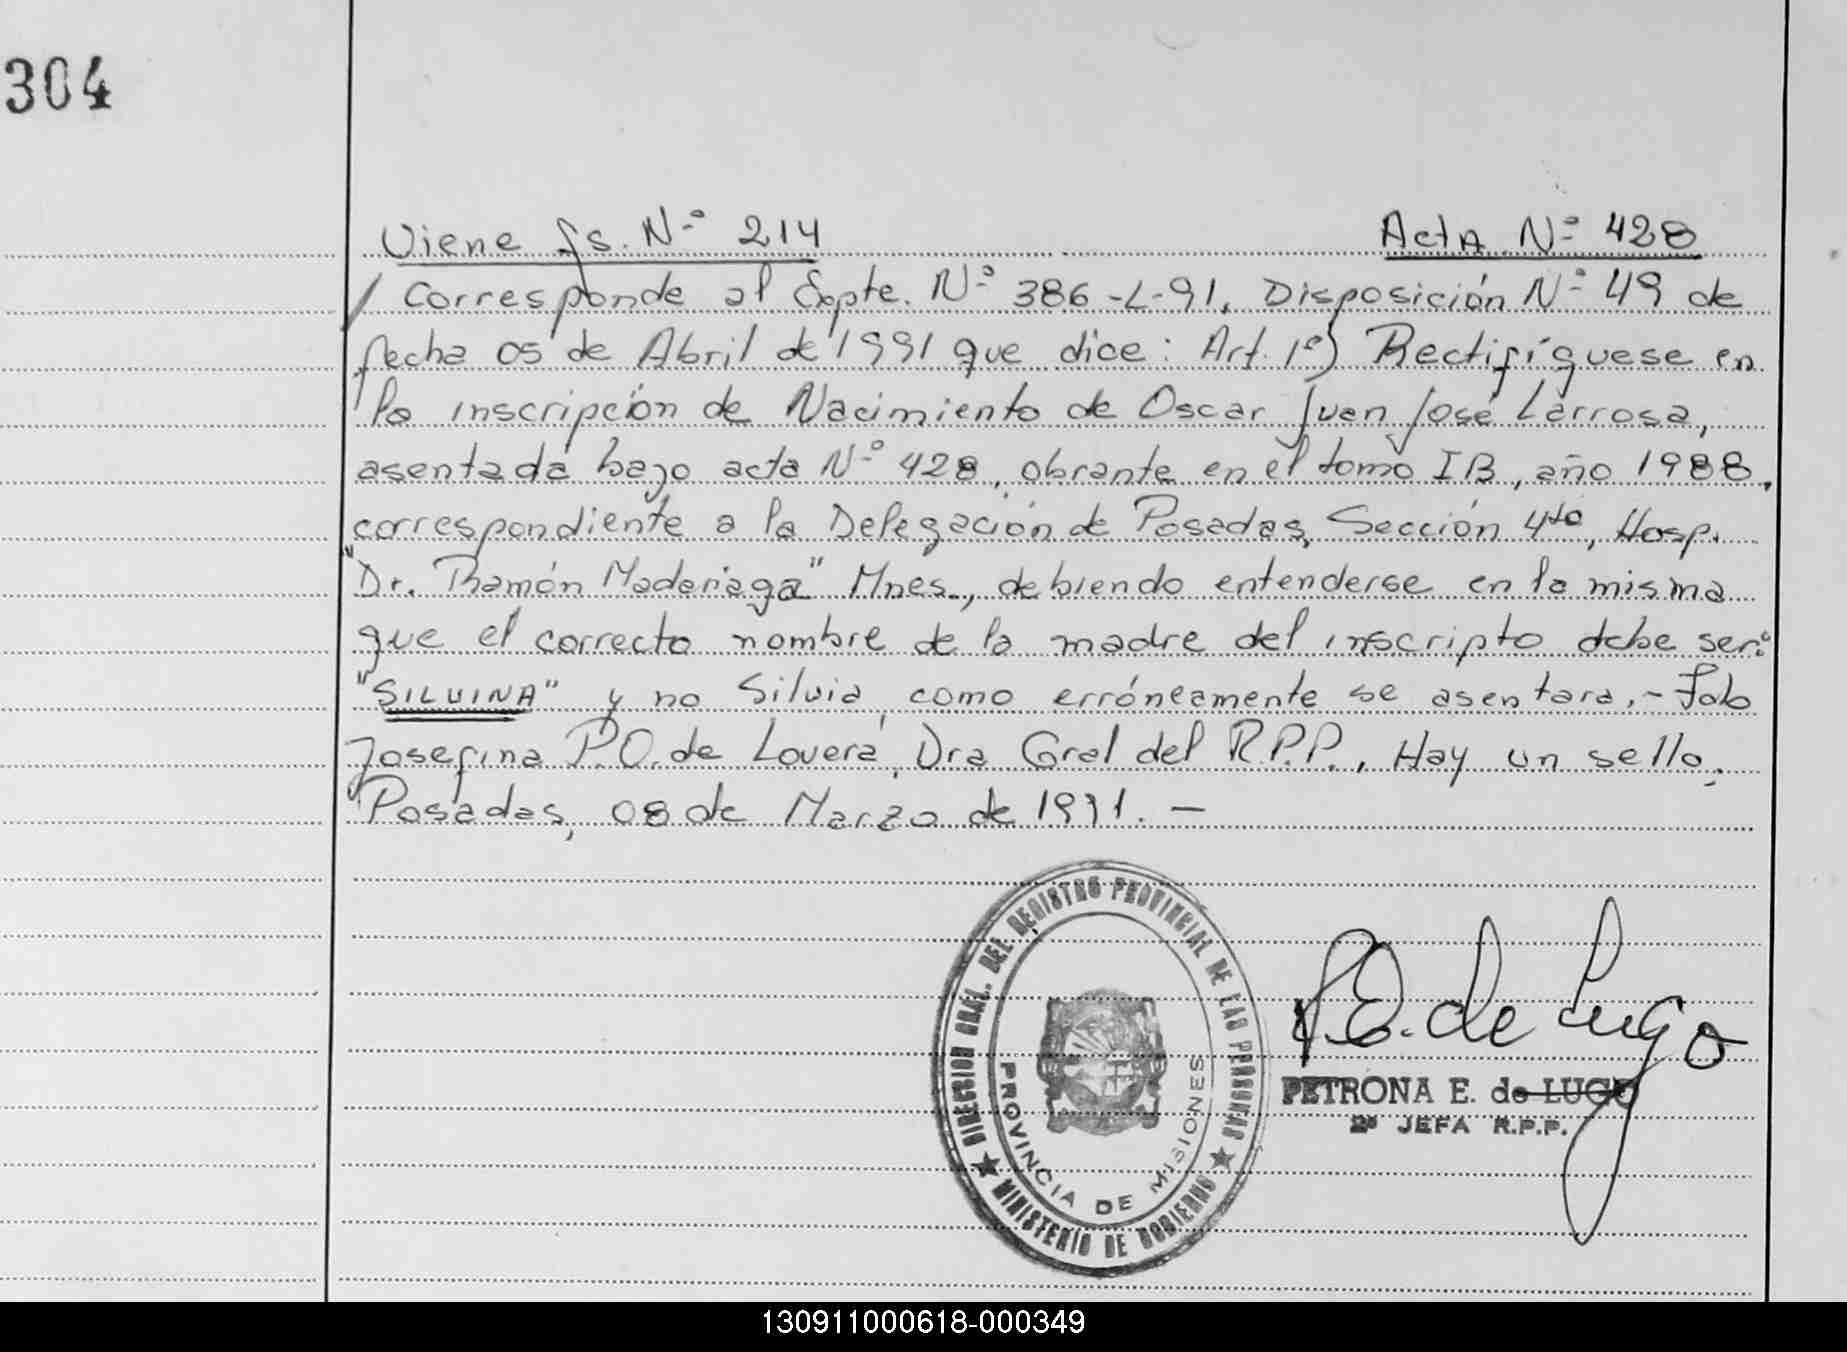 304
Viene fs. Nº 214 Acta Nº 428
/ Corresponde al Expte. Nº 386-L-91, Disposición Nº 49 de
fecha 05 de Abril de 1991 que dice: Art. 1º) Rectifíquese en
la inscripción de Nacimiento de Oscar Juan José Larrosa,
asentada bajo acta Nº 428, obrante en el tomo IB, año 1988,
correspondiente a la Delegación de Posadas, Sección 4ta, Hosp.
"Dr. Ramón Madariaga" Mnes., debiendo entenderse en la misma
que el correcto nombre de la madre del inscripto debe ser:
"SILVINA" y no Silvia, como erróneamente se asentara.- Fdo
Josefina P.O. de Lovera, Dra Gral del R.P.P., Hay un sello.
Posadas, 08 de Marzo de 1991. -
DIRECCION GRAL. DEL REGISTRO PROVINCIAL DE LAS PERSONAS
PROVINCIA DE MISIONES
MINISTERIO DE GOBIERNO
P.E. de Lugo
PETRONA E. de LUGO
2ª JEFA R.P.P.
130911000618-000349